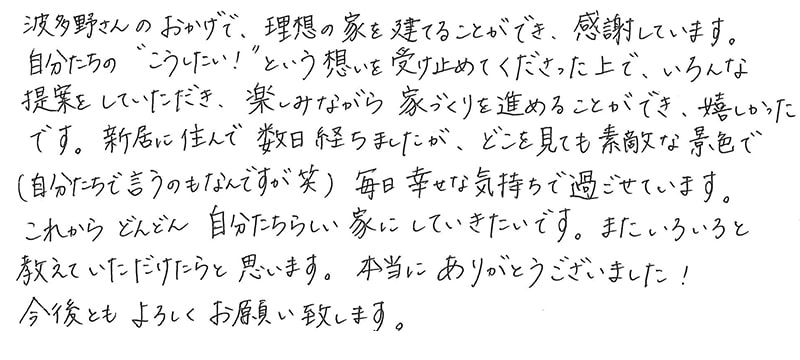 波多野さんのおかげで、理想の家を建てることができ、感謝しています。
自分たちの“こうしたい！”という想いを受け止めてくださった上で、いろんな
提案をしていただき、楽しみながら家づくりを進めることができ、嬉しかった
です。新居に住んで数日経ちましたが、どこを見ても素敵な景色で
(自分たちで言うのもなんですが笑) 毎日幸せな気持ちで過ごせています。
これからどんどん自分たちらしい家にしていきたいです。またいろいろと
教えていただけたらと思います。本当にありがとうございました！
今後ともよろしくお願い致します。